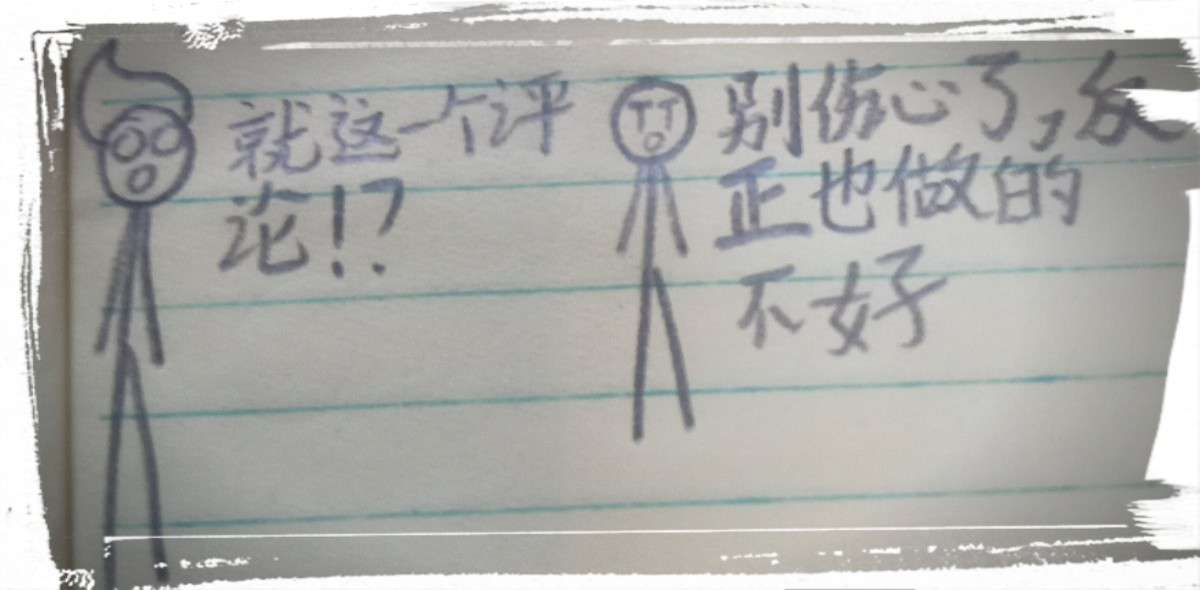 就这一个评
论!?
别伤心了,反
正也做的
不好